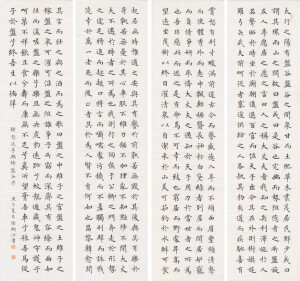 太行之陽有盤谷盤谷之間泉甘而土肥草木叢茂居民鮮少或曰
謂其環兩山之間故曰盤或曰是谷也宅幽而勢阻隱者之所盤旋
友人李愿居之愿之言曰人之稱大丈夫者我知之矣利澤施於人名聲
昭於時坐於廟朝進退百官而佐天子出令其在外則樹旗旄
羅弓矢武夫前呵從者塞途供給之人各執其物夾道而疾馳喜有
賞怒有刑才畯滿前道古今而譽盛德入耳而不煩曲眉豐頰清聲
而便體秀外而惠中飄輕裾翳長袖粉白黛綠者列屋而閒居妒寵
而負恃爭妍而取憐大丈夫之遇知於天子用力於當世者之所為也
吾非惡此而逃之是有命焉不可幸而致也窮居而野處升高而望遠
坐茂樹以終日濯清泉以自潔採於山美可茹釣於水鮮可食
起居無時惟適之安與其有譽於前孰若無毀於其後與其有樂於
身孰若無憂於其心車服不維刀鋸不加理亂不知黜陟不聞大丈
夫不遇於時者之所為也我則行之伺候於公卿之門奔走於形勢之
途足將進而趑趄口將言而囁嚅處污穢而不羞觸刑辟而誅戮
徼倖於萬一老死而後止者其於為人賢不肖何如也昌黎韓愈聞
其言而壯之與之酒而為之歌曰盤之中維子之宮盤之土維子之
稼盤之泉可濯可沿盤之阻誰爭子所窈而深廓其有容繚而曲如
往而復嗟盤之樂兮樂且無央虎豹遠跡兮蛟龍遁藏鬼神守護兮
呵禁不祥飲且食兮壽而康無不足兮奚所望膏吾車兮秣吾馬從
子於盤兮終吾生以徜徉